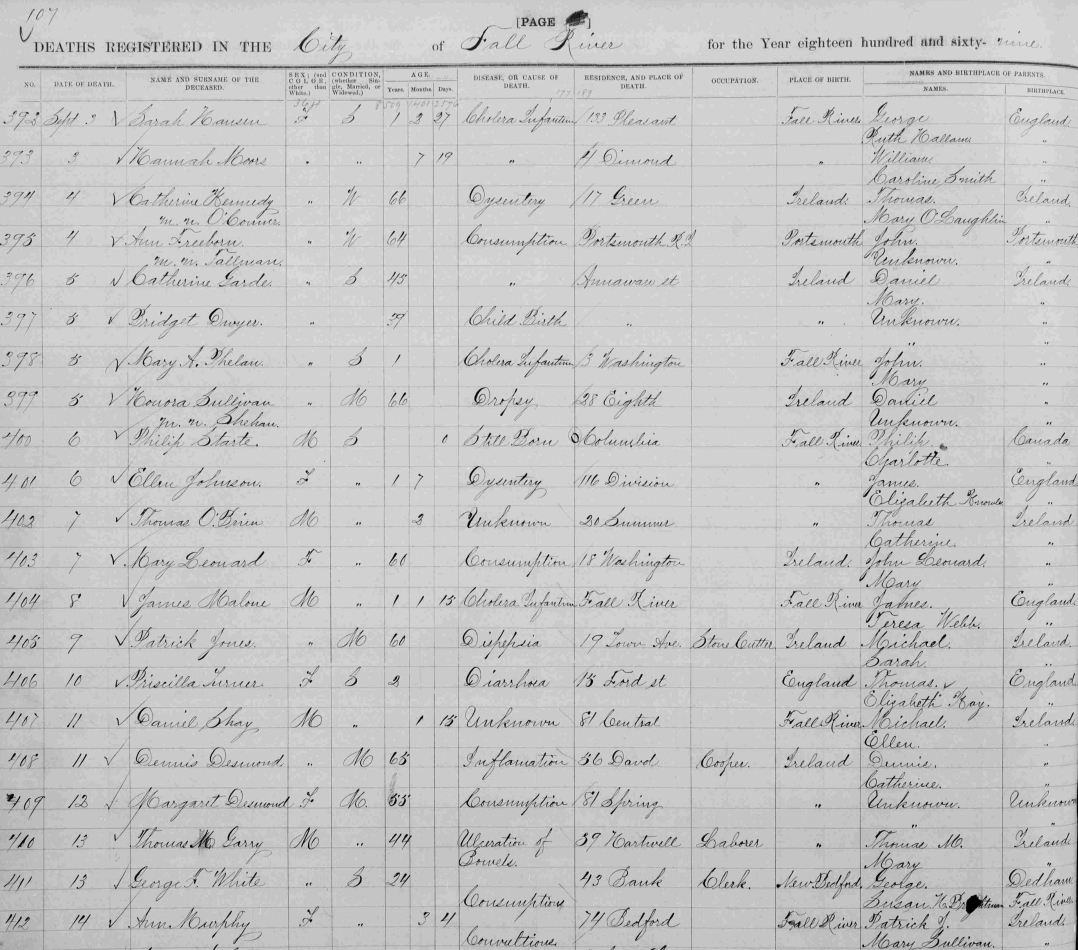 107
[PAGE ]
DEATHS REGISTERED IN THE City of Fall River for the Year eighteen hundred and sixty-nine.
NO. DATE OF DEATH. NAME AND SURNAME OF THE DECEASED. SEX; (and COLOR, if other than White.) CONDITION, (whether Single, Married, or Widowed.) AGE. Years. Months. Days. DISEASE, OR CAUSE OF DEATH. RESIDENCE, AND PLACE OF DEATH. OCCUPATION. PLACE OF BIRTH. NAMES AND BIRTHPLACE OF PARENTS. NAMES. BIRTHPLACE.
392 Sept 3 ✓ Sarah Hansen F S 1 2 27 Cholera Infantum 133 Pleasant Fall River George England
Ruth Hallam "
393 3 ✓ Hannah Moors " " 7 19 " 41 Dimond " William "
Caroline Smith "
394 4 ✓ Catherine Kennedy " W 66 Dysentery 117 Green Ireland. Thomas. Ireland
m. n. O'Conner. Mary O'Laughlin "
395 4 ✓ Ann Freeborn " W 64 Consumption Portsmouth R.I. Portsmouth John. Portsmouth
m. n. Tallman. Unknown. "
396 5 ✓ Catherine Garde. " S 45 " Annawan st Ireland Daniel Ireland.
Mary. "
397 5 ✓ Bridget Dwyer. " 39 Child Birth " " Unknown. "
" "
398 5 ✓ Mary A. Phelan. " S 1 Cholera Infantum 3 Washington Fall River John. "
Mary "
399 5 ✓ Honora Sullivan " M 66 Dropsy 28 Eighth Ireland Daniel "
m. n. Shehan. Unknown. "
400 6 Philip Starte. M S 0 Still Born Columbia Fall River Philip. Canada
Charlotte. "
401 6 ✓ Ellen Johnson. F " 1 7 Dysentery 116 Division " James. England
Elizabeth Knowles "
402 7 ✓ Thomas O'Brien M " 2 Unknown 20 Summer " Thomas Ireland
Catherine. "
403 7 ✓ Mary Leonard F " 60 Consumption 18 Washington Ireland. John Leonard. "
Mary "
404 8 ✓ James Malone M " 1 1 15 Cholera Infantum Fall River Fall River James. England
Teresa Webb. "
405 9 ✓ Patrick Jones. " M 60 Dispepsia 19 Town Ave. Stone Cutter Ireland Michael. Ireland.
Sarah. "
406 10 ✓ Priscilla Turner F S 2 Diarrhoea 15 Ford st England Thomas. ✓ England
Elizabeth Kay. "
407 11 ✓ Daniel Shay M " 1 15 Unknown 81 Central Fall River Michael. Ireland
Ellen. "
408 11 ✓ Dennis Desmond " M 65 Inflamation 56 Davol Cooper. Ireland Dennis. "
Catherine. "
409 12 ✓ Margaret Desmond F M. 55 Consumption 81 Spring " Unknown. Unknown
"
410 13 ✓ Thomas Mc Garry M " 44 Ulceration of 39 Hartwell Laborer " Thomas M. Ireland.
Bowels. Mary "
411 13 ✓ George F. White " S 24 43 Bank Clerk. New Bedford. George. Dedham
Consumption Susan H. Fall River
412 14 ✓ Ann. Murphy F 3 4 74 Bedford Fall River Patrick J. Ireland.
Convultions. Mary Sullivan. "